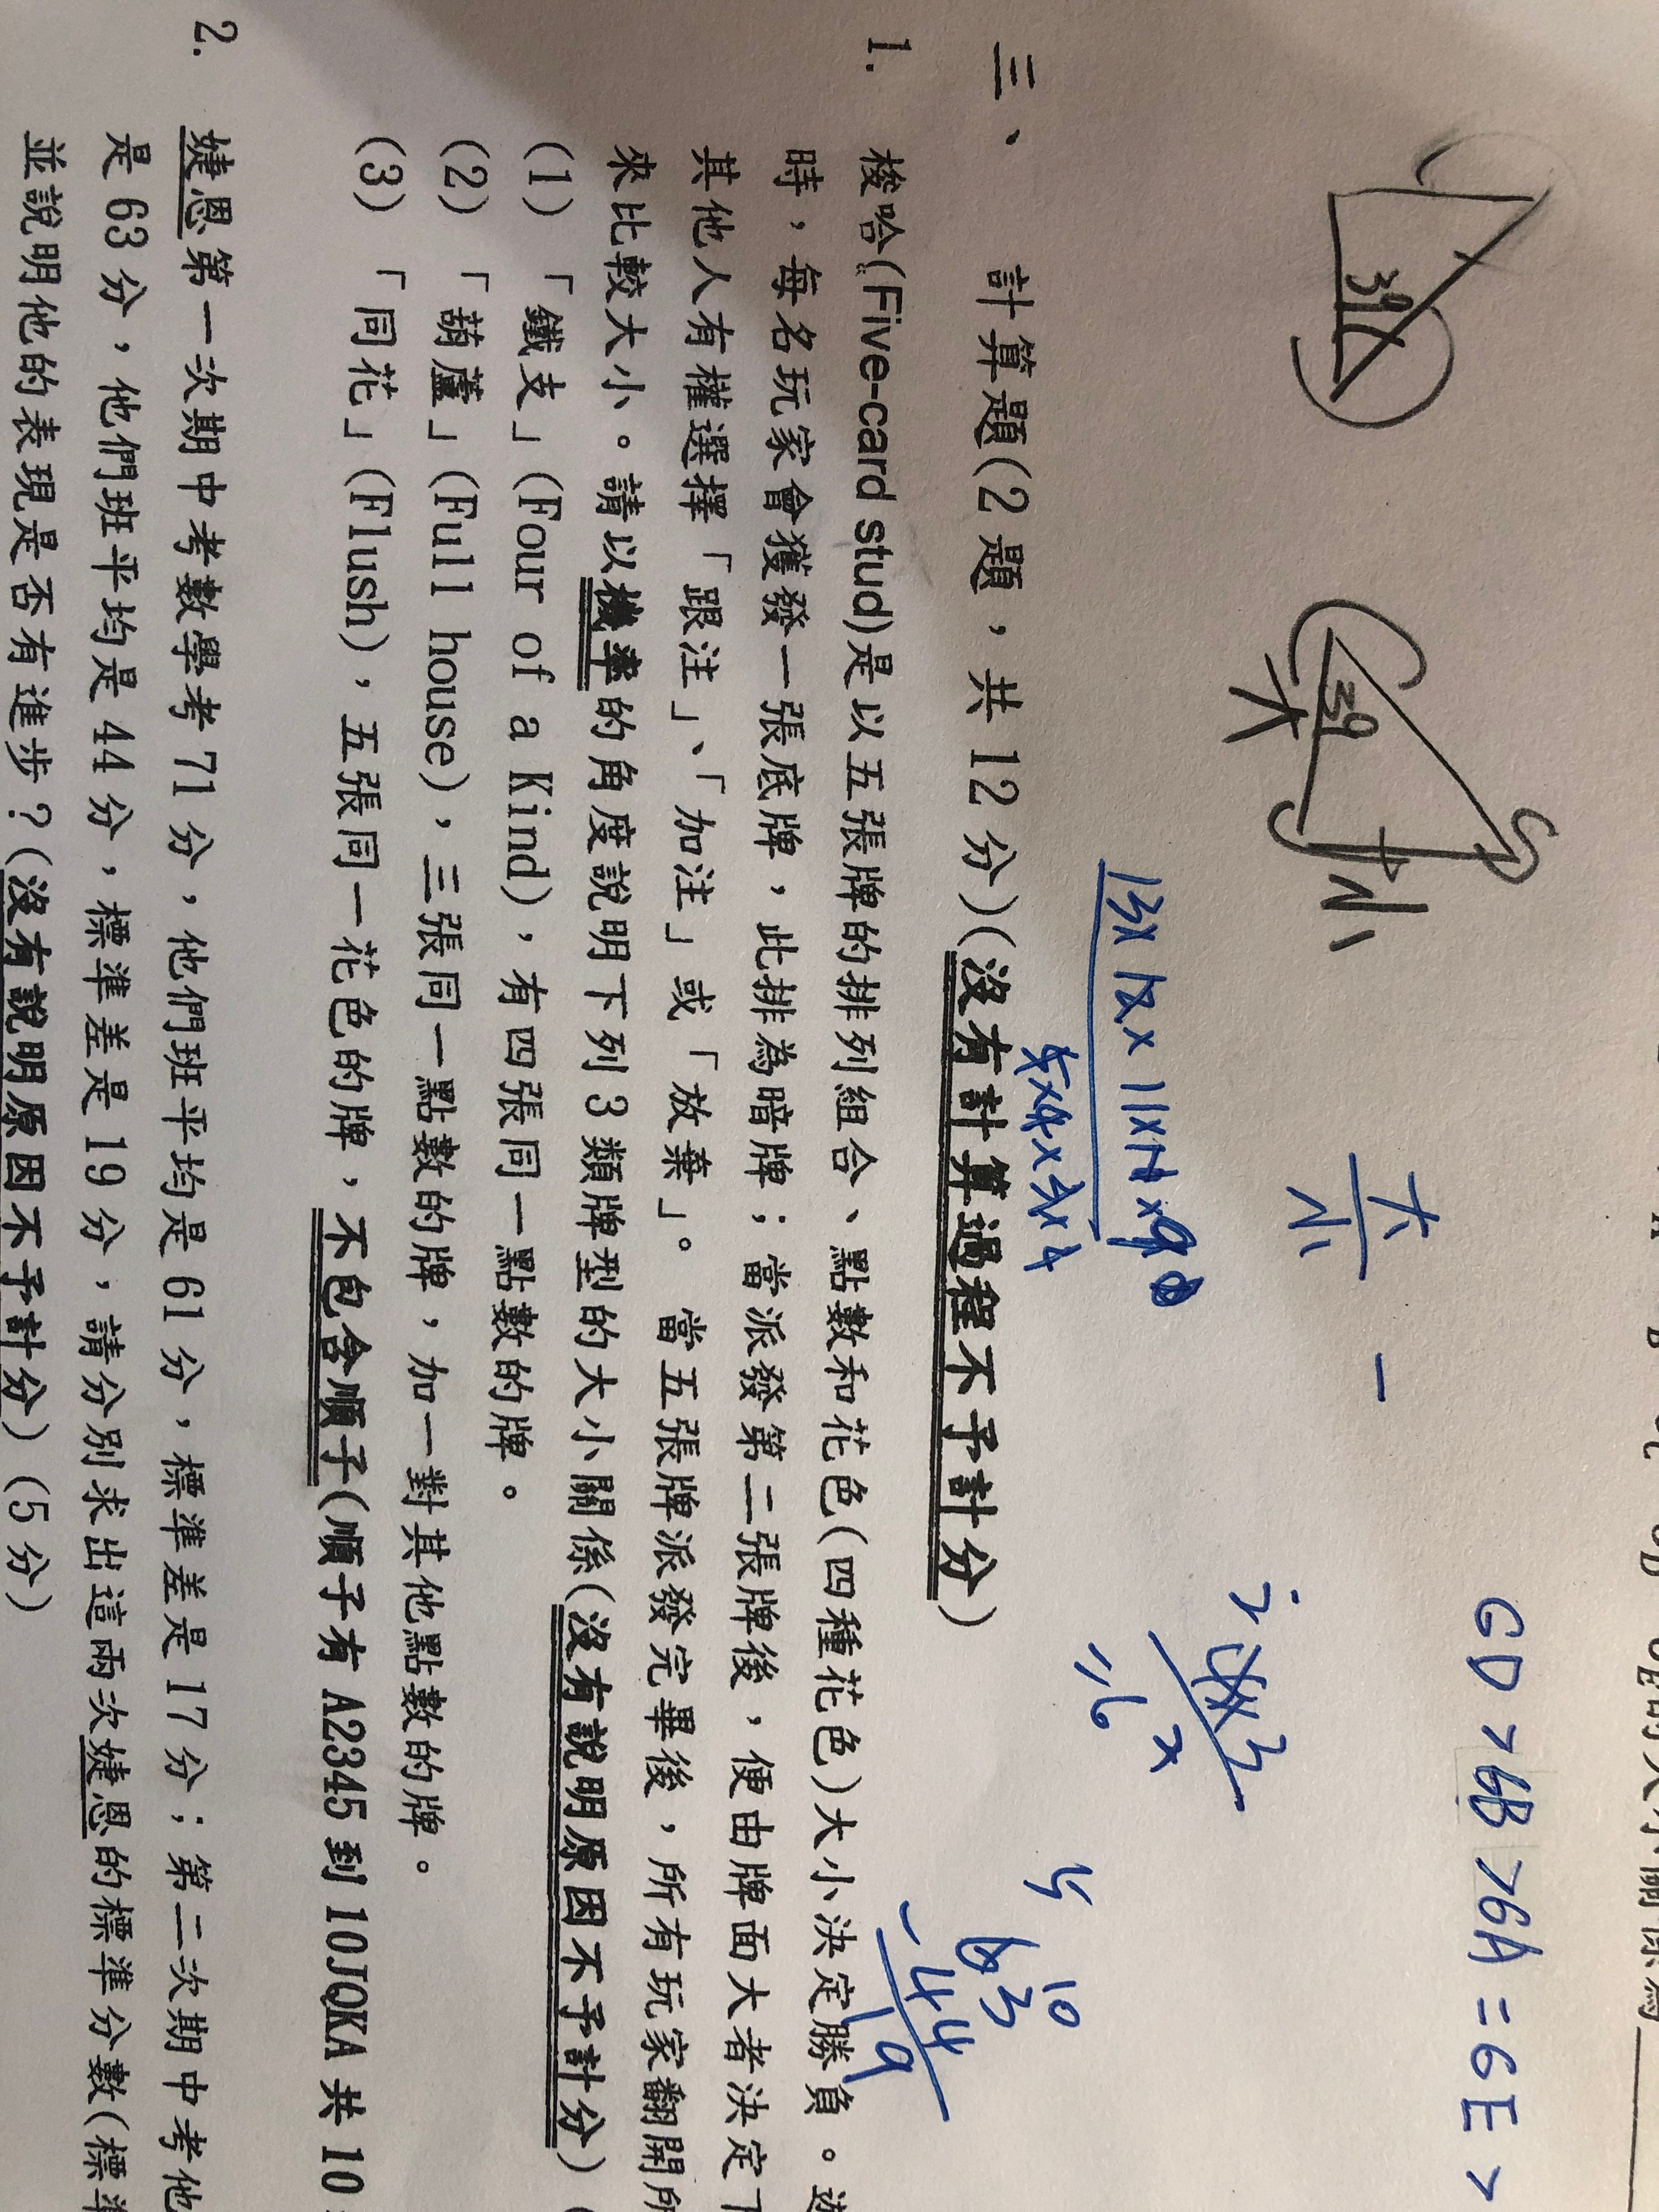 GD > GB > GA = GE >
39
39
大
小
大
小
13×12×11×
5×4×3×
63
-44
19
三、 計算題(2 題，共 12 分)(沒有計算過程不予計分)
1. 梭哈(Five-card stud)是以五張牌的排列組合、點數和花色(四種花色)大小決定勝負。遊
時，每名玩家會獲發一張底牌，此排為暗牌；當派發第二張牌後，便由牌面大者決定下
其他人有權選擇「跟注」、「加注」或「放棄」。當五張牌派發完畢後，所有玩家翻開所
來比較大小。請以機率的角度說明下列 3 類牌型的大小關係(沒有說明原因不予計分)(
(1) 「鐵支」(Four of a Kind)，有四張同一點數的牌。
(2) 「葫蘆」(Full house)，三張同一點數的牌，加一對其他點數的牌。
(3) 「同花」(Flush)，五張同一花色的牌，不包含順子(順子有 A2345 到 10JQKA 共 10
2. 婕恩第一次期中考數學考 71 分，他們班平均是 61 分，標準差是 17 分；第二次期中考他
是 63 分，他們班平均是 44 分，標準差是 19 分，請分別求出這兩次婕恩的標準分數(標準
並說明他的表現是否有進步？(沒有說明原因不予計分)(5 分)